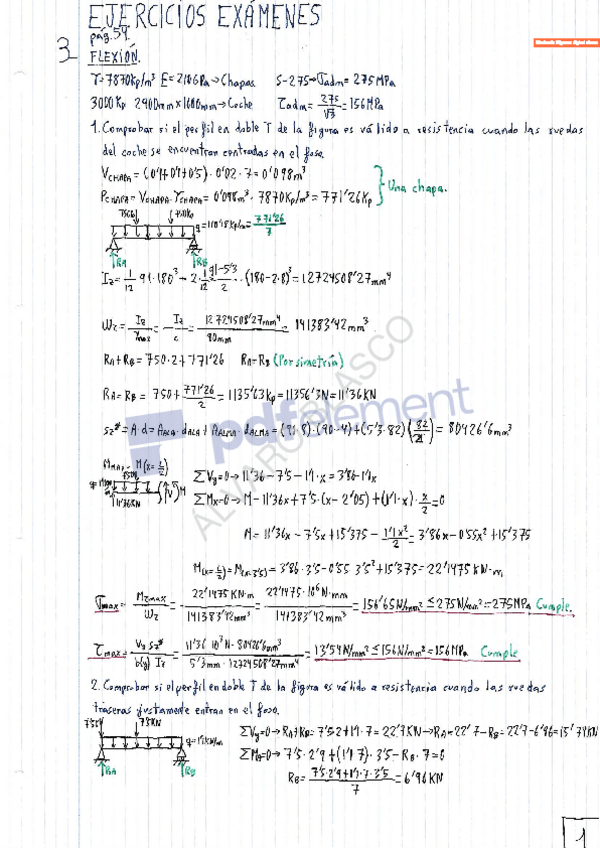 EJERCICIOS EXÁMENES
pág. 54.
3
FLEXIÓN.
γ=7870Kp/m³ E=210GPa→Chapas S-275→σadm=275MPa
3000Kp 2900mm x 1600mm→Coche τadm=275/√3=156MPa
1. Comprobar si el perfil en doble T de la figura es válido a resistencia cuando las ruedas
del coche se encuentran centradas en el foso.
VCHAPA=(0'1+0'1+0'5)·0'02·7=0'098m³
PCHAPA=VCHAPA·γCHAPA=0'098m³·7870Kp/m³=771'26Kp
Una chapa.
750Kp 750Kp q=110'18Kp/m=771'26/7
RA RB
Iz=1/12·91·180³-2·1/12·(91-5'3)/2·(180-2·8)³=12724508'27mm⁴
Wz=Iz/ymax=Iz/c=12724508'27mm⁴/90mm=141383'42mm³
RA+RB=750·2+771'26 RA=RB (Por simetría)
RA=RB=750+771'26/2=1135'63Kp=11356'3N=11'36KN
Sz*=A·d=AALA·dALA+AALMA·dALMA=(91·8)·(90-4)+(5'3·82)(82/2)=80426'6mm³
MMAX→M(x=L/2)
11'36KN
ΣVy=0→11'36-7'5-1'1·x=3'86-1'1x
ΣMx=0→M-11'36x+7'5·(x-2'05)+(1'1·x)·x/2=0
M=11'36x-7'5x+15'375-1'1x²/2=3'86x-0'55x²+15'375
M(x=L/2)=M(x=3'5)=3'86·3'5-0'55·3'5²+15'375=22'1475KN·m
σmax=Mzmax/Wz=22'1475KN·m/141383'42mm³=22'1475·10⁶N·mm/141383'42mm³=156'65N/mm²≤275N/mm²=275MPa Cumple.
τmax=Vy·Sz*/b(y)·Iz=11'36·10³N·80426'6mm³/5'3mm·12724508'27mm⁴=13'54N/mm²≤156N/mm²=156MPa Cumple
2. Comprobar si el perfil en doble T de la figura es válido a resistencia cuando las ruedas
traseras justamente entran en el foso.
7'5KN 7'5KN q=1'1KN/m
RA RB
ΣVy=0→RA+RB=7'5·2+1'1·7=22'7KN→RA=22'7-RB=22'7-6'96=15'74KN
ΣMA=0→7'5·2'9+(1'1·7)·3'5-RB·7=0
RB=7'5·2'9+1'1·7·3'5/7=6'96KN
ALVARO BLASCO
pdfelement
1